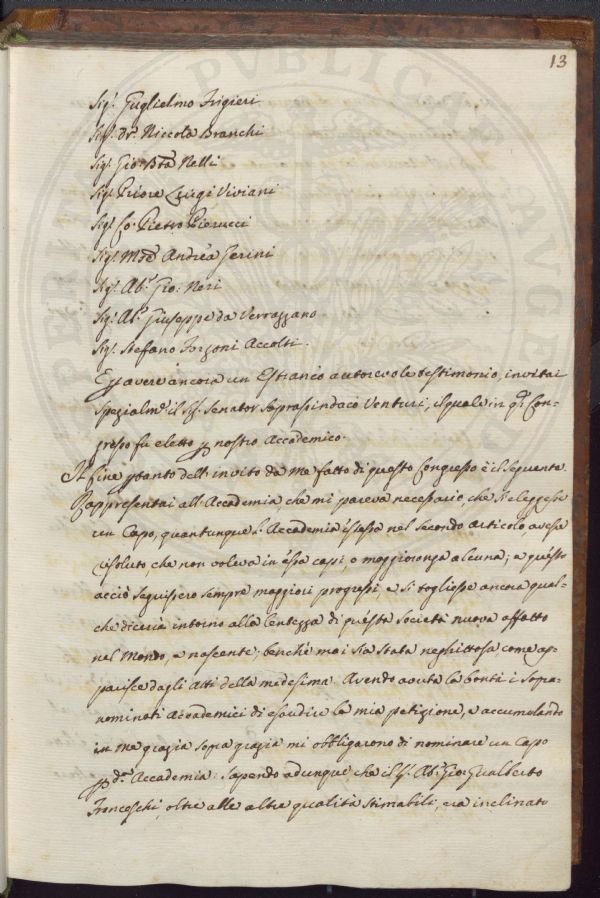 13
Sig.r Guglielmo Frigieri
Sig.r Dr. Niccola Branchi
Sig.r Gio: Bta Nelli
Sig.r Priore Luigi Viviani
Sig.r Co. Pietro Pierucci
Sig.r M.se Andrea Gerini
Sig.r Ab.e Gio: Neri
Sig.r Ab.e Giuseppe da Verrazzano
Sig.r Stefano Forzoni Accolti.
E p avere ancora un Estraneo autorevole testimonio, invitai
spezialm.e il Sig.r Senator Soprassindaco Venturi, il quale in q.o Con-
gresso fu eletto p nostro Accademico.
Il fine p tanto dell'invito da me fatto di questo Congresso è il seguente.
Rappresentai all'Accademia, che mi pareva necessario, che si eleggesse
un Capo, quantunque l'Accademia istessa nel secondo articolo avesse
risoluto che non voleva in essa capi, o maggioranza alcuna; e questo
acciò seguissero sempre maggiori progressi, e si togliesse ancora qual-
che diceria intorno alla lentezza di questa Società nuova affatto
nel Mondo, e nascente; benchè mai sia stata neghittosa, come ap-
parisce dagli Atti della medesima. Avendo avuta la bontà i sopra-
nominati Accademici di esaudire la mia petizione, e accumulando
in me grazia sopra grazia mi obbligarono di nominare un Capo
p d.a Accademia: sapendo adunque che il Sig.r Ab.e Gio: Gualberto
Franceschi, oltre alle altre qualità stimabili, era inclinato
PVBLICAE